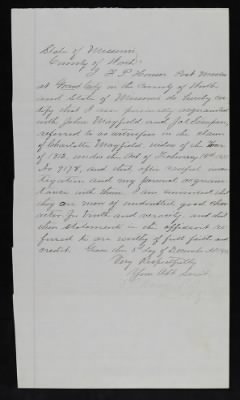 State of Missouri
County of Worth
I H. P. Houser Post Master
at Grant City in the County of Worth
and State of Missouri do hereby cer
tify that I am personally acquainted
with John Mayfield and
referred to as witnesses in the claim
of Charlotte Mayfield widow of the War
of 1812 under the Act of February 14th 1871
No 7178, and that after careful inves
tigation and my personal acquain
tance with them I am convinced that
they are men of undoubted good char
acter for truth and veracity and that
their statements in the affidavit re
ferred to are worthy of full faith and
credit. Given this 5th day of December
Very Respectfully
Your Obt Servt